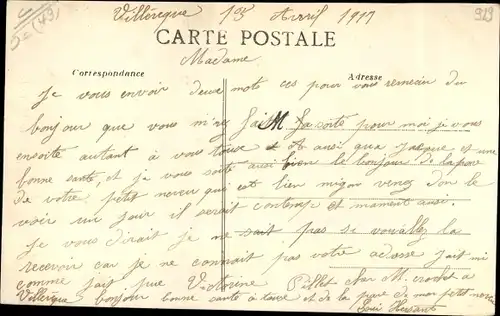 5=(49)
923
Villerique 13 Avril 1911
CARTE POSTALE
Madame
Correspondance
Adresse
Je vous envoir deux mots ces pour vous remercier du
bonjour que vous m'nez fait M sa soite pour moi je vous
ensoite autant à vous touse & A ansi qua Jacque et une
bonne santé, et je vous soite ausi bien le bonjour de la pare
de votre petit neveu qui est bien mignon venez don le
voir un jour il serait contemp et maman ausi.
Je vous dirait je ne sait pas si vous allez la
recevoir car je ne connait pas votre adresse jait mi
comme jait pue Victorine Pillet cher M. crochet a
Villerique bonjour bonne santé a touse et de la pare de mon petit neveu